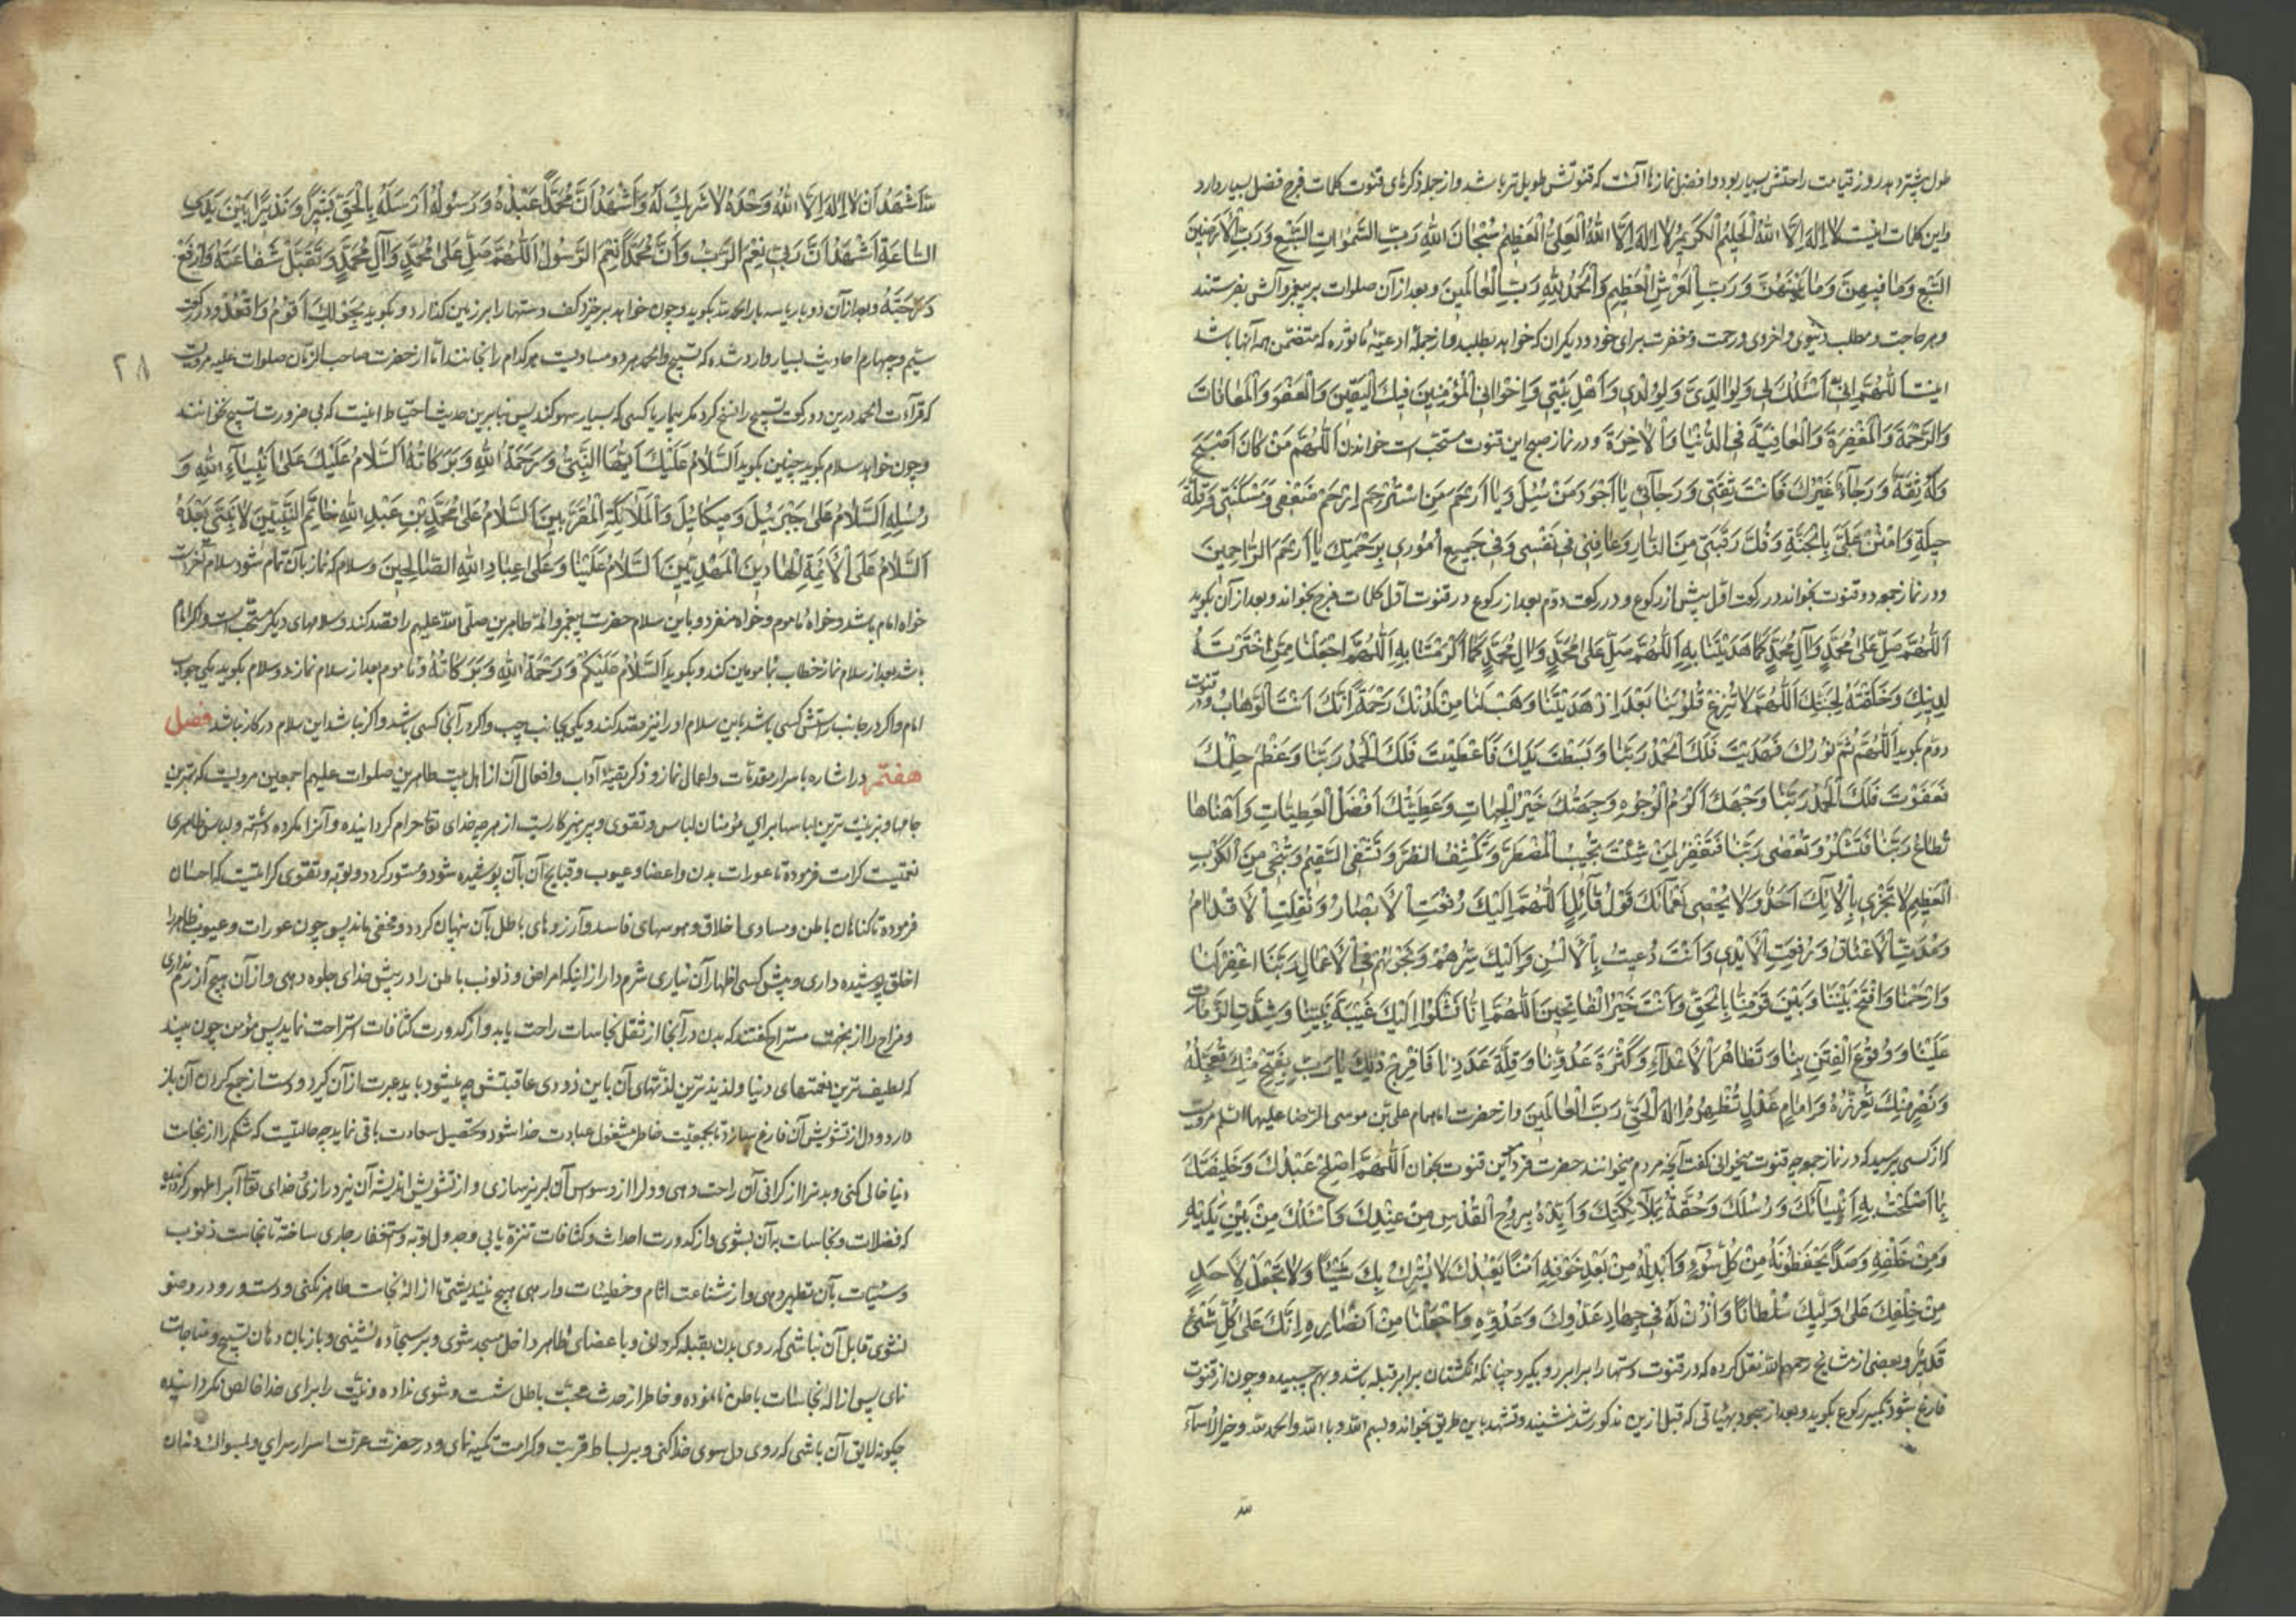 طول پیشتر دهد روز قیامت راحتش بسیار بود و افضل نمازها آنست که قنوتش طویل‌تر باشد و از جمله ذکرهای قنوت کلمات فرج فضل بسیار دارد
و این کلمات اینست لا اِلهَ اِلَّا اللهُ الْحَلیمُ الْکَریمُ لا اِلهَ اِلَّا اللهُ الْعَلِیُّ الْعَظیمُ سُبْحانَ اللهِ رَبِّ السَّمٰواتِ السَّبْعِ وَرَبِّ الْاَرَضینَ
السَّبْعِ وَما فیهِنَّ وَما بَیْنَهُنَّ وَرَبِّ الْعَرْشِ الْعَظیمِ وَالْحَمْدُ لِلّٰهِ رَبِّ الْعالَمینَ و بعد از آن صلوات بر پیغمبر و آلش بفرستند
و هر حاجت و مطلب دنیوی و اخروی و رحمت و مغفرت برای خود و دیگران که خواهد بطلبد و از جملهٔ ادعیهٔ ماثوره که متضمن همه آنها باشد
اینست اَللّٰهُمَّ اِنّی اَسْئَلُکَ لی وَلِوالِدَیَّ وَلِوُلْدی وَاَهْلِ بَیْتی وَاِخْوانِی الْمُؤْمِنینَ فیکَ الْیَقینَ وَالْعَفْوَ وَالْمُعافاتَ
وَالرَّحْمَةَ وَالْمَغْفِرَةَ وَالْعافِیَةَ فِی الدُّنْیا وَالْاٰخِرَةَ و در نماز صبح این قنوت مستحب است خواندن اَللّٰهُمَّ مَنْ کانَ اَصْبَحَ
وَلَهُ ثِقَةٌ وَرَجاءٌ غَیْرُکَ فَاَنْتَ ثِقَتی وَرَجائی یا اَجْوَدَ مَنْ سُئِلَ وَیا اَرْحَمَ مَنِ اسْتُرْحِمَ اِرْحَمْ ضَعْفی وَمَسْکَنَتی وَقِلَّةَ
حیلَتی وَامْنُنْ عَلَیَّ بِالْجَنَّةِ وَفُکَّ رَقَبَتی مِنَ النّارِ وَعافِنی فی نَفْسی وَفی جَمیعِ اُمُوری بِرَحْمَتِکَ یا اَرْحَمَ الرّاحِمینَ
و در نماز جمعه دو قنوت بخواند در رکعت اوّل پیش از رکوع و در رکعت دوّم بعد از رکوع در قنوت اوّل کلمات فرج بخواند و بعد از آن بگوید
اَللّٰهُمَّ صَلِّ عَلیٰ مُحَمَّدٍ وَآلِ مُحَمَّدٍ کَما هَدَیْتَنا بِهِ اَللّٰهُمَّ صَلِّ عَلیٰ مُحَمَّدٍ وَآلِ مُحَمَّدٍ کَما اَکْرَمْتَنا بِهِ اَللّٰهُمَّ اجْعَلْنا مِمَّنِ اخْتَرْتَهُ
لِدینِکَ وَخَلَقْتَهُ لِجَنَّتِکَ اَللّٰهُمَّ لا تُزِغْ قُلُوبَنا بَعْدَ اِذْ هَدَیْتَنا وَهَبْ لَنا مِنْ لَدُنْکَ رَحْمَةً اِنَّکَ اَنْتَ الْوَهّابُ و در قنوت
دوّم بگوید اَللّٰهُمَّ تَمَّ نُورُکَ فَهَدَیْتَ فَلَکَ الْحَمْدُ رَبَّنا وَبَسَطْتَ یَدَکَ فَاَعْطَیْتَ فَلَکَ الْحَمْدُ رَبَّنا وَعَظُمَ حِلْمُکَ
فَعَفَوْتَ فَلَکَ الْحَمْدُ رَبَّنا وَجْهُکَ اَکْرَمُ الْوُجُوهِ وَجِهَتُکَ خَیْرُ الْجِهاتِ وَعَطِیَّتُکَ اَفْضَلُ الْعَطِیّاتِ وَاَهْنَاها
تُطاعُ رَبَّنا فَتَشْکُرُ وَتُعْصیٰ رَبَّنا فَتَغْفِرُ لِمَنْ شِئْتَ تُجیبُ الْمُضْطَرَّ وَتَکْشِفُ الضُّرَّ وَتَشْفِی السَّقیمَ وَتُنْجی مِنَ الْکَرْبِ
الْعَظیمِ لا یَجْزی بِاٰلائِکَ اَحَدٌ وَلا یُحْصی نَعْمائَکَ قَوْلُ قائِلٍ اَللّٰهُمَّ اِلَیْکَ رُفِعَتِ الْاَبْصارُ وَنُقِلَتِ الْاَقْدامُ
وَمُدَّتِ الْاَعْناقُ وَرُفِعَتِ الْاَیْدی وَاَنْتَ دُعیتَ بِالْاَلْسُنِ وَاِلَیْکَ سِرُّهُمْ وَنَجْویٰهُمْ فِی الْاَعْمالِ رَبَّنَا اغْفِرْ لَنا
وَارْحَمْنا وَافْتَحْ بَیْنَنا وَبَیْنَ قَوْمِنا بِالْحَقِّ وَاَنْتَ خَیْرُ الْفاتِحینَ اَللّٰهُمَّ اِنّا نَشْکُوا اِلَیْکَ غَیْبَةَ نَبِیِّنا وَشِدَّةَ الزَّمانِ
عَلَیْنا وَوُقُوعَ الْفِتَنِ بِنا وَتَظاهُرَ الْاَعْداءِ وَکَثْرَةَ عَدُوِّنا وَقِلَّةَ عَدَدِنا فَافْرِجْ ذٰلِکَ یا رَبِّ بِفَتْحٍ مِنْکَ تُعَجِّلُهُ
وَنَصْرٍ مِنْکَ تُعِزُّهُ وَاِمامِ عَدْلٍ تُظْهِرُهُ اِلٰهَ الْحَقِّ رَبَّ الْعالَمینَ و از حضرت امام علی بن موسی الرّضا علیهما السّلم مرویست
که از کسی پرسید که در نماز جمعه چه قنوت میخوانی گفت آنچه مردم میخوانند حضرت فرمود این قنوت بخوان اَللّٰهُمَّ اَصْلِحْ عَبْدَکَ وَخَلیفَتَکَ
بِما اَصْلَحْتَ بِهِ اَنْبِیائَکَ وَرُسُلَکَ وَحُفَّهُ بِمَلائِکَتِکَ وَاَیِّدْهُ بِرُوحِ الْقُدُسِ مِنْ عِنْدِکَ وَاسْلُکْ مِنْ بَیْنِ یَدَیْهِ
وَمِنْ خَلْفِهِ رَصَدًا یَحْفَظُونَهُ مِنْ کُلِّ سُوءٍ وَاَبْدِلْهُ مِنْ بَعْدِ خَوْفِهِ اَمْنًا یَعْبُدُکَ لا یُشْرِکُ بِکَ شَیْئًا وَلا تَجْعَلْ لِاَحَدٍ
مِنْ خَلْقِکَ عَلیٰ وَلِیِّکَ سُلْطانًا وَأْذَنْ لَهُ فی جِهادِ عَدُوِّکَ وَعَدُوِّهِ وَاجْعَلْنا مِنْ اَنْصارِهِ اِنَّکَ عَلیٰ کُلِّ شَیْءٍ
قَدیرٌ و بعضی از مشایخ رحمهم الله نقل کرده که در قنوت دستها را برابر رو بگیرد چنانکه انگشتان برابر قبله باشد و بهم چسبیده و چون از قنوت
فارغ شود تکبیر رکوع بگوید و بعد از سجود بهیأتی که قبل ازین مذکور شد بنشیند و تشهد باین طریق بخواند و بسم الله و بالله والحمد لله و خیر الأسماء
لله
لله اَشْهَدُ اَنْ لا اِلهَ اِلَّا اللهُ وَحْدَهُ لا شَریکَ لَهُ وَاَشْهَدُ اَنَّ مُحَمَّدًا عَبْدُهُ وَرَسُولُهُ اَرْسَلَهُ بِالْحَقِّ بَشیرًا وَنَذیرًا بَیْنَ یَدَیِ
السّاعَةِ اَشْهَدُ اَنَّ رَبّی نِعْمَ الرَّبُّ وَاَنَّ مُحَمَّدًا نِعْمَ الرَّسُولُ اَللّٰهُمَّ صَلِّ عَلیٰ مُحَمَّدٍ وَآلِ مُحَمَّدٍ وَتَقَبَّلْ شَفاعَتَهُ وَارْفَعْ
دَرَجَتَهُ و بعد از آن دو بار یا سه بار الحمد لله بگوید و چون خواهد برخیزد کف دستها را بر زمین گذارد و بگوید بِحَوْلِکَ اَقُومُ وَاَقْعُدُ و در رکعت
سیّم و چهارم احادیث بسیار وارد شده که تسبیح و الحمد هر دو مساویست هر کدام را بخوانند امّا از حضرت صاحب الزّمان صلوات علیه مرویست
۲۸
که قرآءت الحمد درین دو رکعت تسبیح را نسخ کرد مگر بیمار یا کسی که بسیار سهو کند پس بنابرین حدیث احتیاط اینست که بی ضرورت تسبیح نخوانند
و چون خواهد سلام بگوید چنین بگوید اَلسَّلامُ عَلَیْکَ اَیُّهَا النَّبِیُّ وَرَحْمَةُ اللهِ وَبَرَکاتُهُ اَلسَّلامُ عَلَیْکَ عَلیٰ اَنْبِیاءِ اللهِ وَ
رُسُلِهِ اَلسَّلامُ عَلیٰ جَبْرَئیلَ وَمیکائیلَ وَالْمَلائِکَةِ الْمُقَرَّبینَ اَلسَّلامُ عَلیٰ مُحَمَّدِ بْنِ عَبْدِ اللهِ خاتَمِ النَّبِیّینَ لا نَبِیَّ بَعْدَهُ
اَلسَّلامُ عَلَی الْاَئِمَّةِ الْهادینَ الْمَهْدِیّینَ اَلسَّلامُ عَلَیْنا وَعَلیٰ عِبادِ اللهِ الصّالِحینَ و سلام که نماز بآن تمام شود سلام آخر است
خواه امام باشد و خواه ماموم و خواه منفرد و باین سلام حضرت پیغمبر و ائمه طاهرین صلّی الله علیهم را قصد کند و سلامهای دیگر مستحبّ است و اگر امام
باشد بعد از سلام نماز خطاب بمامومین کند و بگوید اَلسَّلامُ عَلَیْکُمْ وَرَحْمَةُ اللهِ وَبَرَکاتُهُ و ماموم بعد از سلام نماز دو سلام بگوید یکی جواب
امام و اگر در جانب راستش کسی باشد باین سلام او را نیز قصد کند و یکی بجانب چپ و اگر در آنجا کسی باشد و اگر نباشد این سلام در کار نباشد فصل
هفتم در اشاره باسرار مقدمات و اعمال نماز و ذکر بقیّهٔ آداب و افعال آن از اهل بیت طاهرین صلوات علیهم اجمعین مرویست که بهترین
جامها و بزینت‌ترین لباسها برای مؤمنان لباس و تقوی و پرهیزکاریست از هرچه خدای تعا حرام گردانیده و آنرا مکروه داشته و لباس ظاهری
نعمتیست کرامت فرموده تا عورات بدن و اعضا و عیوب و قبایح آن بآن پوشیده شود و مستور گردد و توبه و تقوی کرامتیست که احسان
فرموده تا گناهان باطن و مساوی اخلاق و هوسهای فاسد و آرزوهای باطل بآن پنهان گردد و مخفی ماند پس چون عورات و عیوب ظاهر را
از خلق پوشیده داری و پیش کسی اظهار آن نیاری شرم دار از اینکه امراض و ذنوب باطن را در پیش خدای جلوه دهی و از آن هیچ آزرم نداری
و مزاح را از بجهت مستراح گفتند که بدن در آنجا از ثقل نجاسات راحت یابد و از کدورت کثافات استراحت نماید پس مؤمن چون بیند
که لطیف‌ترین نعمتهای دنیا و لذیذترین لذّتهای آن باین زودی عاقبتش چه میشود باید عبرت از آن گیرد و دست از جمع کردن آن باز
دارد و دل از تشویش آن فارغ سازد تا بجمعیّت خاطر مشغول عبادت خدا شود و تحصیل سعادت باقی نماید چه حالتیست که شکم را از نجاسات
دنیا خالی کنی و بدن را از گرانی آن راحت دهی و دل را از وسوس آن لبریز سازی و از تشویش اندیشه آن نپردازی و خدای تعا آب را طهور گردانیده
که فضلات و نجاسات بدان بشوی و از کدورت احداث و کثافات تنزّه یابی و جدول توبه و استغفار جاری ساخته تا نجاست ذنوب
و سیّئات بآن تطهیر دهی و از شناعت آثام و خطیئات وارهی هیچ نیندیشی تا ازاله نجاست ظاهر نکنی و دست و رو در وضو
نشوی قابل آن نباشی که روی بدن بقبله گردانی و باعضای ظاهر داخل مسجد شوی و بر سجّاده نشینی و با زبان دهان تسبیح و مناجات
نمای پس ازاله نجاسات باطن نانموده و خاطر از حدث محبّت باطل شست و شوی نداده و نیّت را برای خدا خالص نگردانیده
چگونه لایق آن باشی که روی دل سوی خدا کنی و بر بساط قربت و کرامت تکیه نمای و در حضرت عزّت اسرار سرای و بمسواک دندان